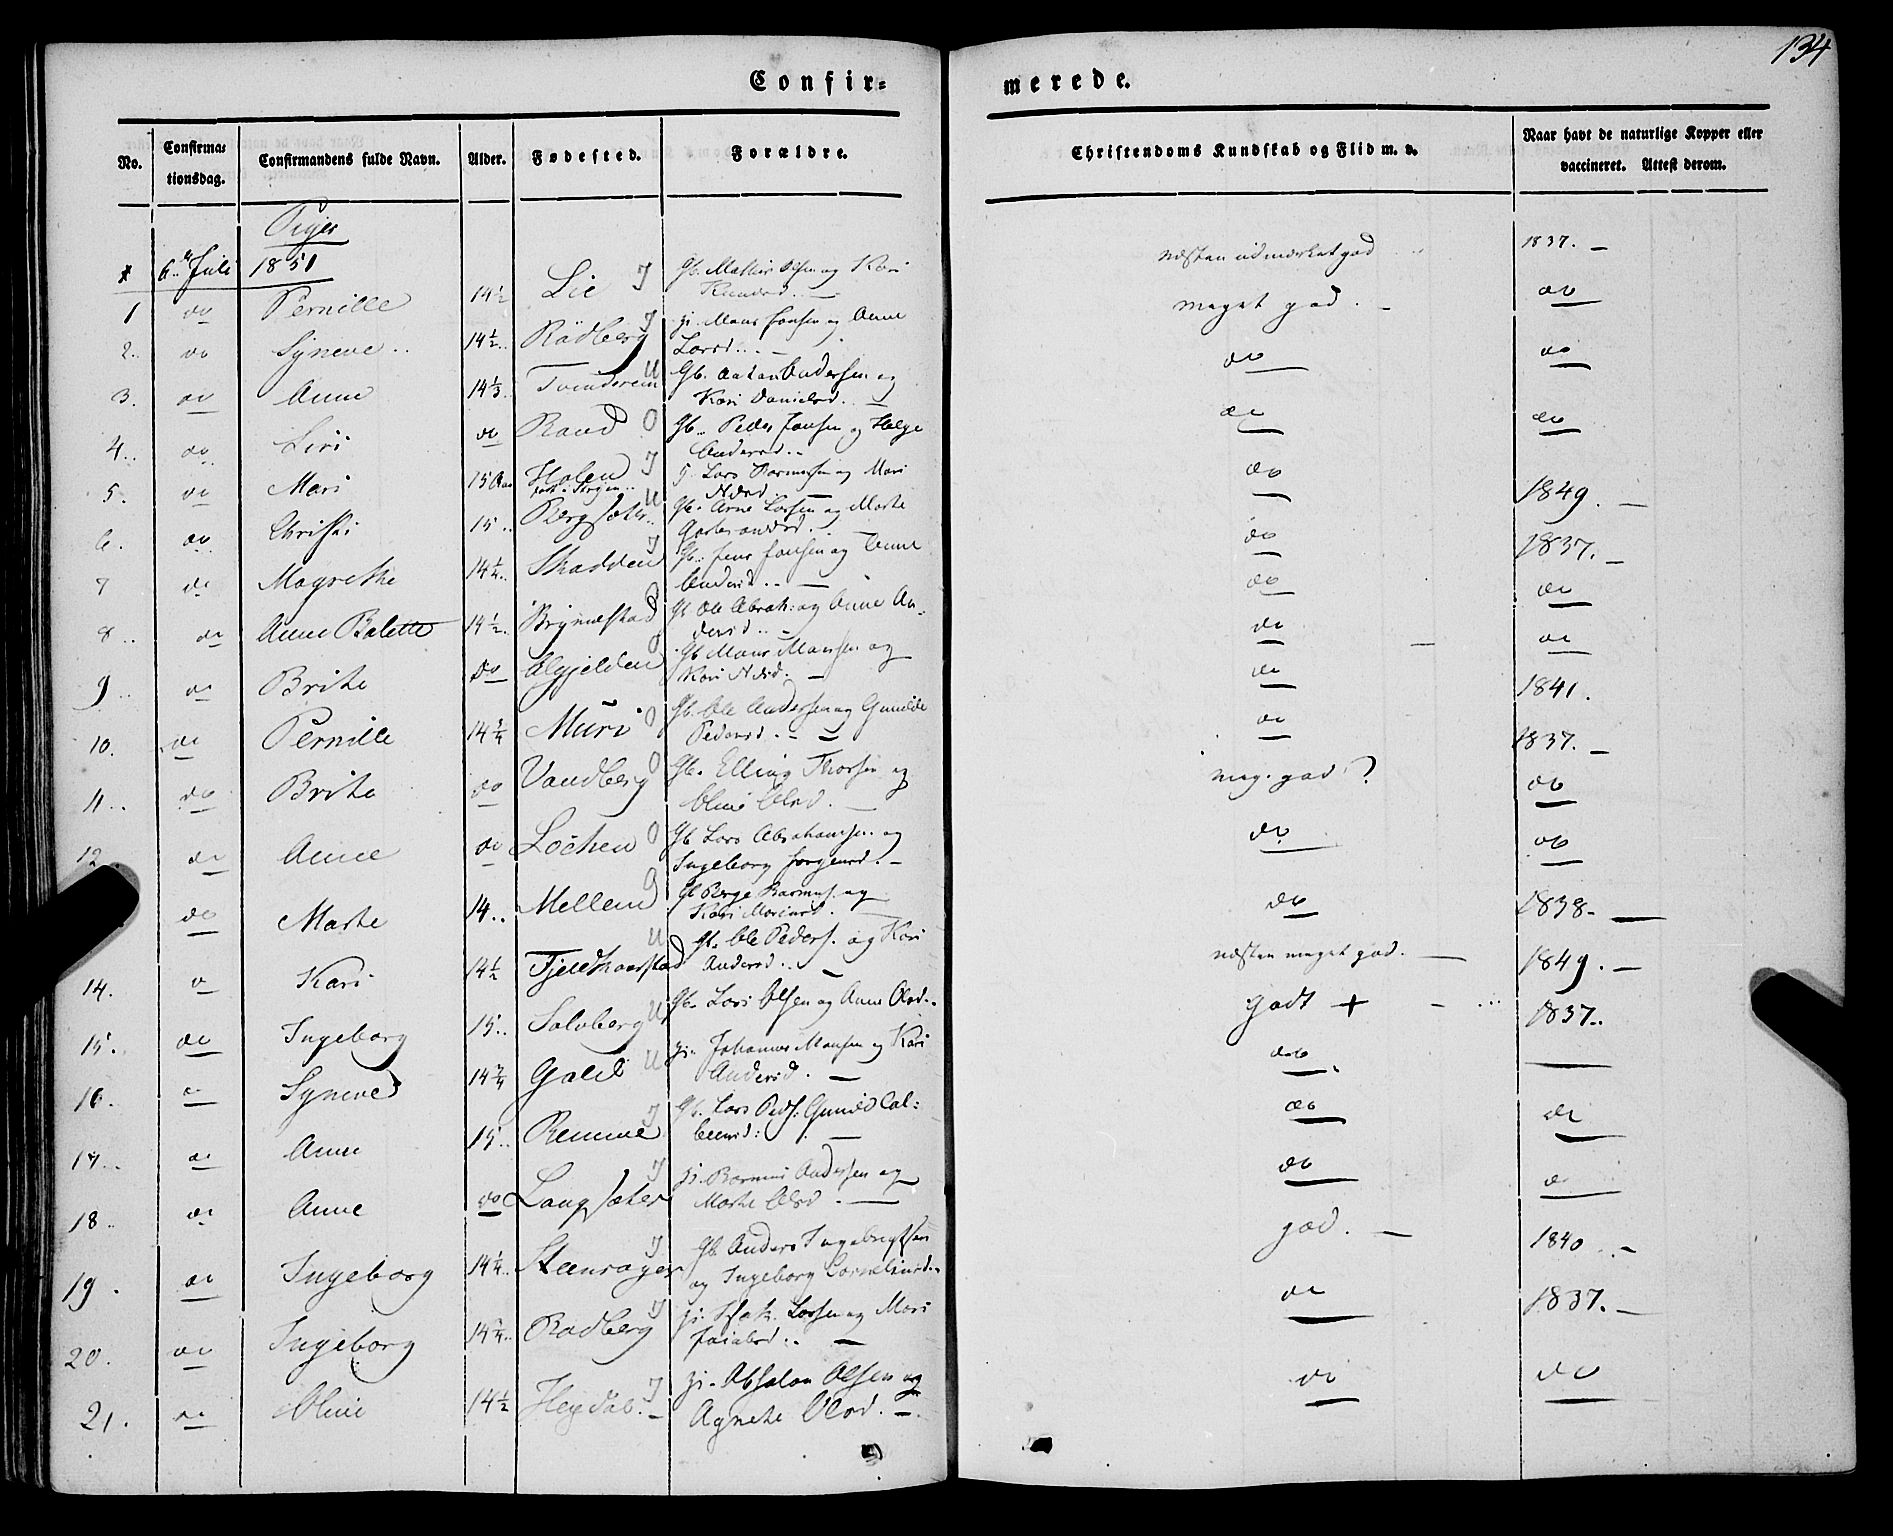 134
Confir=
merede.
No.
Confirma=
tionsdag.
Confirmandens fulde Navn.
Alder.
Fødested.
Forældre.
Christendoms Kundskab og Flid m. v.
Naar havt de naturlige Kopper eller
vaccineret. Attest derom.
Piger
6te Juli 1851
1 do Pernille 14½ Lie J Gb. Mathis Olsen og Kari
næsten udmærket god 1837. —
2. do Syneve.. 14½.. Rödberg J Mons Jonsen og Anne
Larsd.. — meget god. — do
3. do Anne 14⅓ U Gb. Anton Andersen og
Kari Danielsd. — do do
4.. do Siri do Rand O Gb. Peder Jonsen og Helge
Andersd.. do do
5. do Mari 15 Aar Holen J Lars Rasmussen og Mari
do 1849. —
6. do Christi 15.. Bergsæter.. U Gb. Arne Larsen og Marte
do 1837. —
7 do Magrethe 14½.. Skadden J Gb. Jens Jonsen og Anne
Andersd.. — do do
8.. do Anne Bolette 14½. Brynnestad Gb. Ole Abrah: og Anne An-
dersd.. — do — do
9.. do Brithe do O Gb. Mons Monsen og
Kari — do 1841.
10. do Pernille 14¾ Muri O Gb. Ole Andersen og Gunilde
Pedersd. — do 1837. —
11.. do Brithe do Vandberg O Gb. Elling Thorsen og
Oline Olsd. — meg. god? do
12 do Anne do Löchen O Gb. Lars Abrahamsen og
Ingeborg Jørgensd. — do do
do Marthe 14.. Mellem Gb. Berge Rasmus. og
Kari — do 1838. —
14. Kari 14½ Fjeldkaarstad U Gb. Ole Peders. og Kari
Andersd.. — næsten meget god. — 1849. —
15. do Ingeborg 15.. Solvberg U Gb. Lars Olsen og Anne Olsd..
godt + 1837..
16. do Syneve 14¾ U Johannes Monsen og Kari
Andersd. — do. —
17.. do Anne 15.. Remme J Gb. Lars Peds: Gunild Col=
do do
18.. do Anne do Langsæter J Rasmus Andersen og
Marthe Olsd. — do do
19. do Ingeborg 14¼.. Steensager J Gb. Anders Ingebrigtsen
og Ingeborg Corneliusd.. god. — 1840..-
20. do Ingeborg 14¾.. Rødberg J Isak Larsen og Mari
do 1837. —
21. do Oline 14½ Hegdal. — J Absalon Olsen og
Agnethe Olsd. — do do